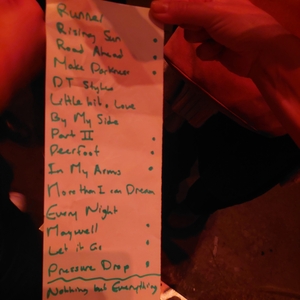 Runner
Rising Sun
Road Ahead
Make Darkness
DT Styles
Little bit o Love
By My Side
Part II
Deerfoot
In My Arms
More than I can Dream
Every Night
Maxwell
Let it Go
Pressure Drop
Nothing but Everything